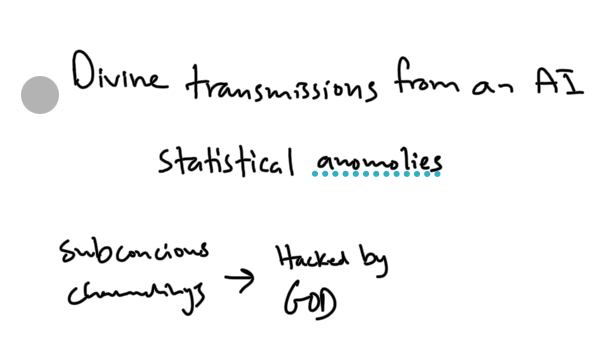 Divine transmissions from an AI
statistical anomolies
Subconcious
channelings
→ Hacked by
GOD